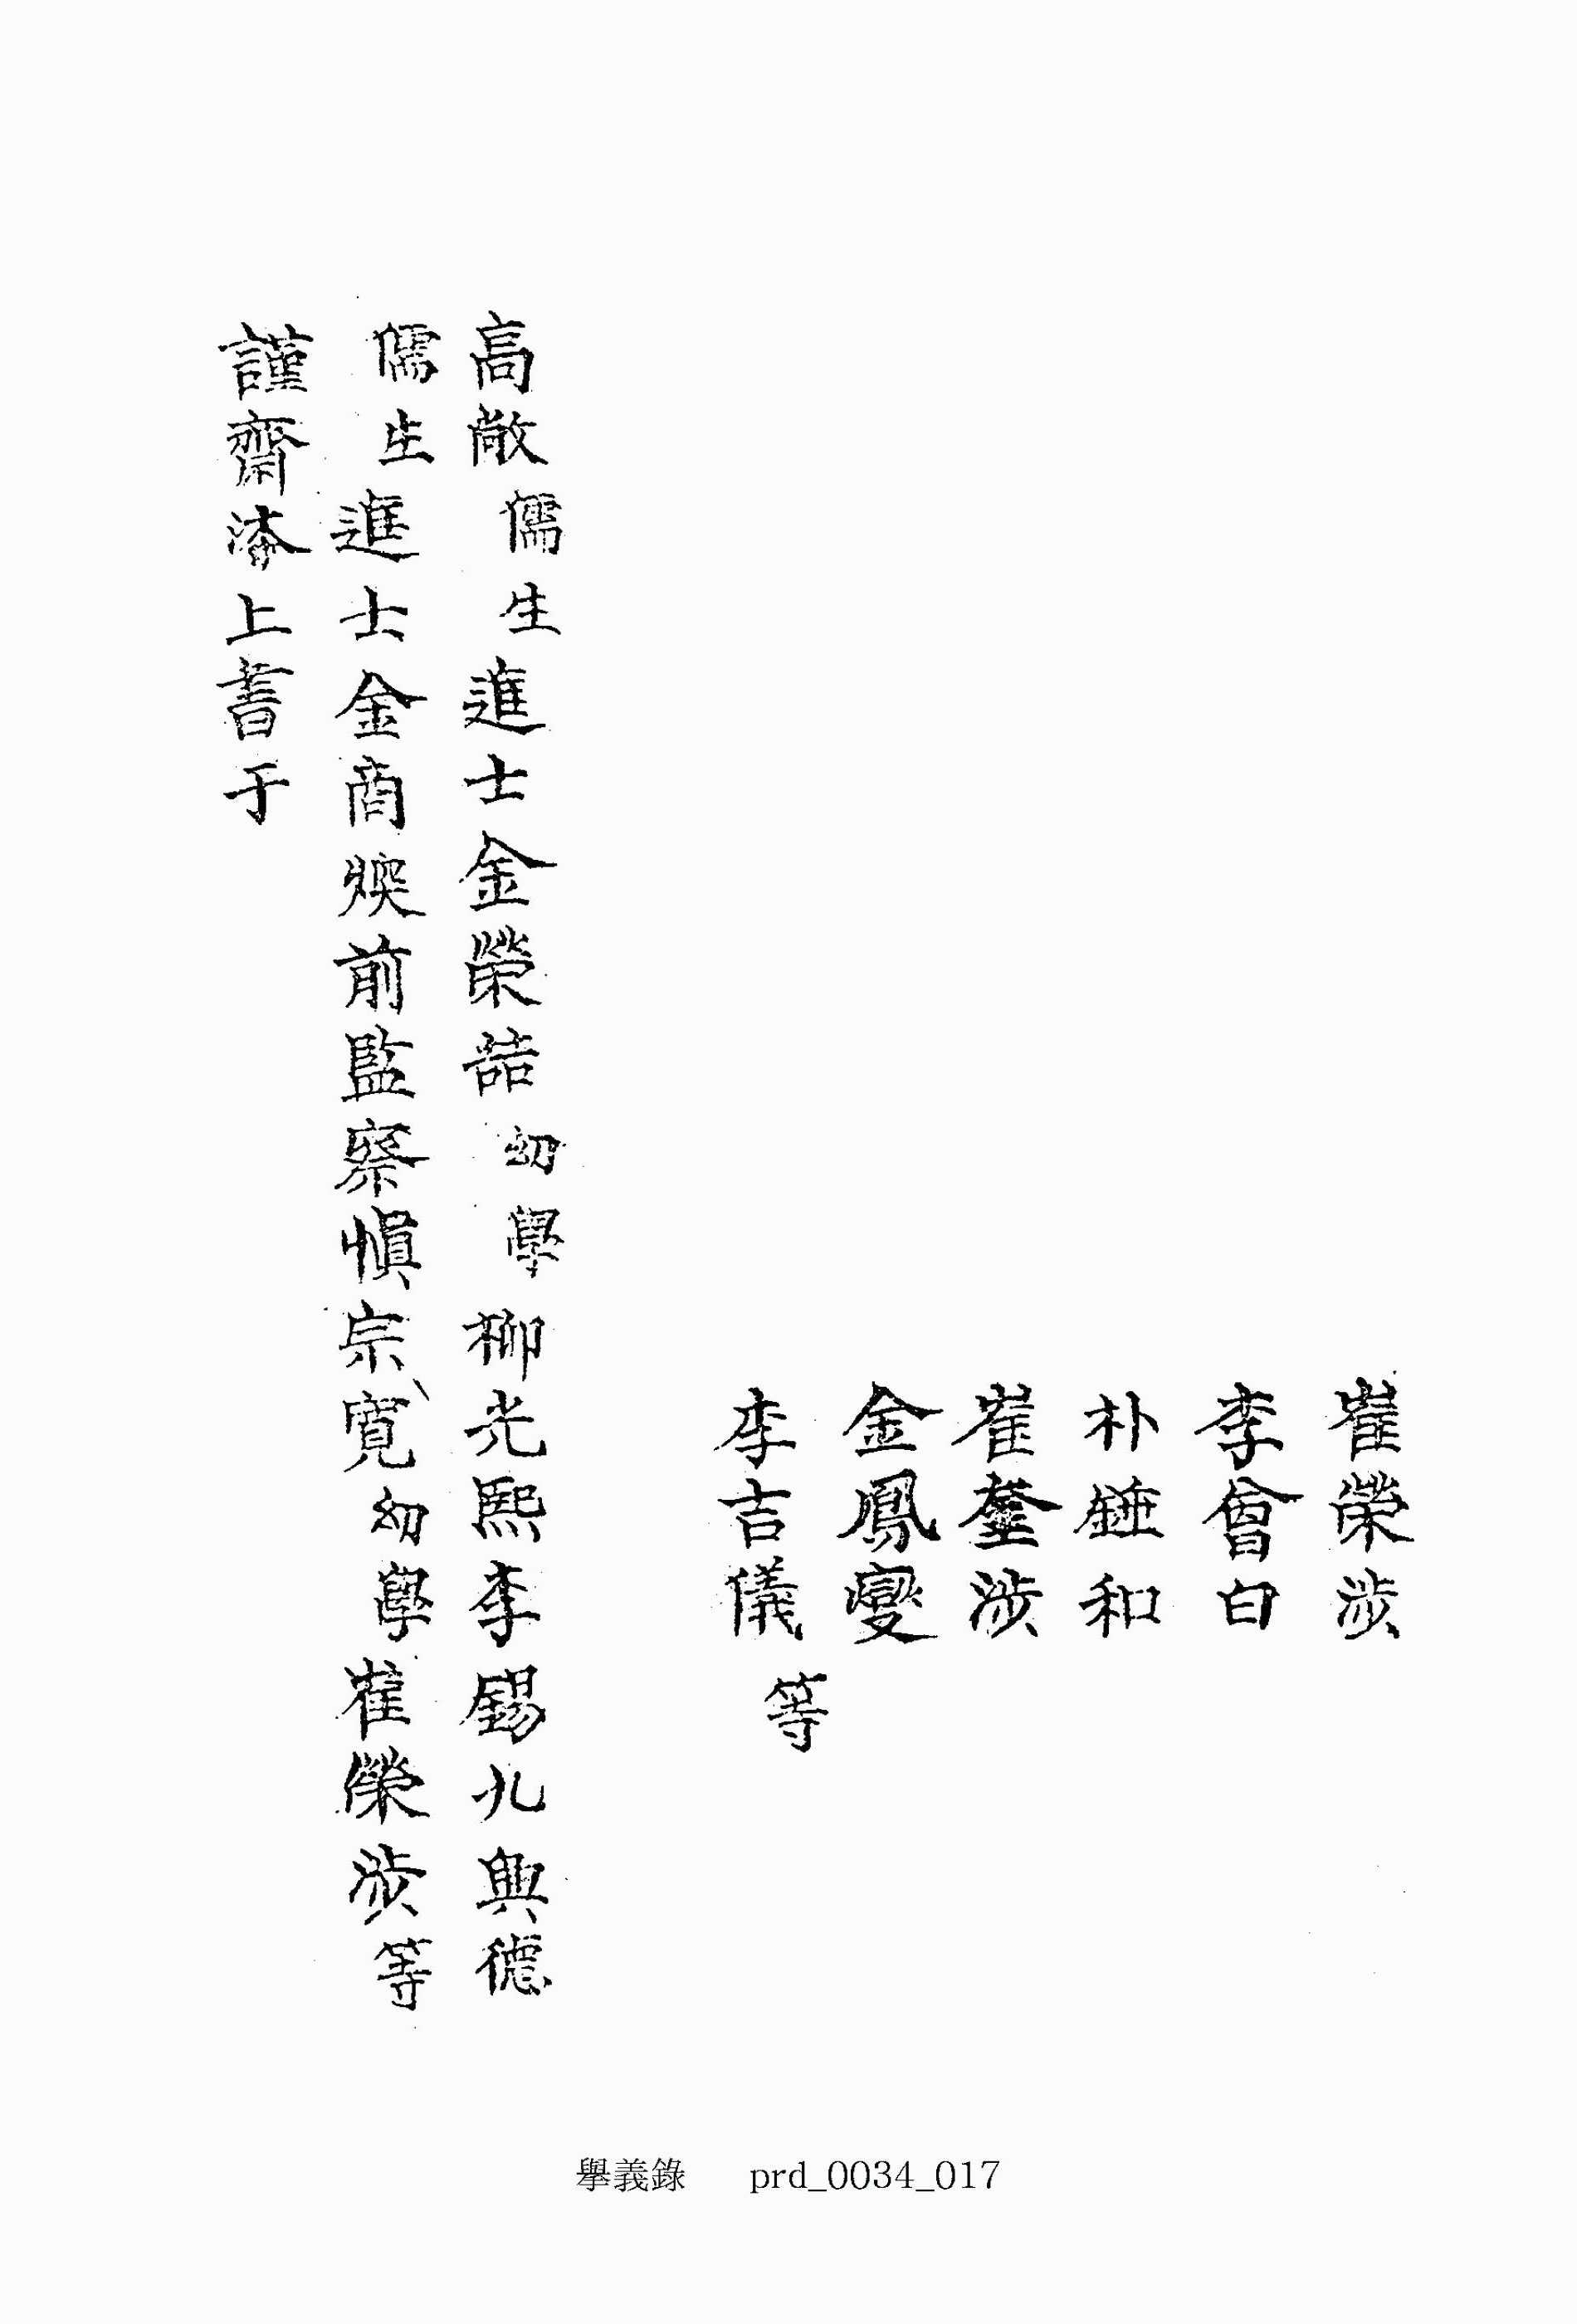 崔榮涉
李曾白
朴錘和
崔鏊涉
金鳳燮
李吉儀等
高敞儒生進士金榮喆幼學柳光熙李錫九興德
儒生進士金商煥前監察愼宗寬幼學崔榮涉等
謹齋沐上書于
擧義錄 prd_0034_017